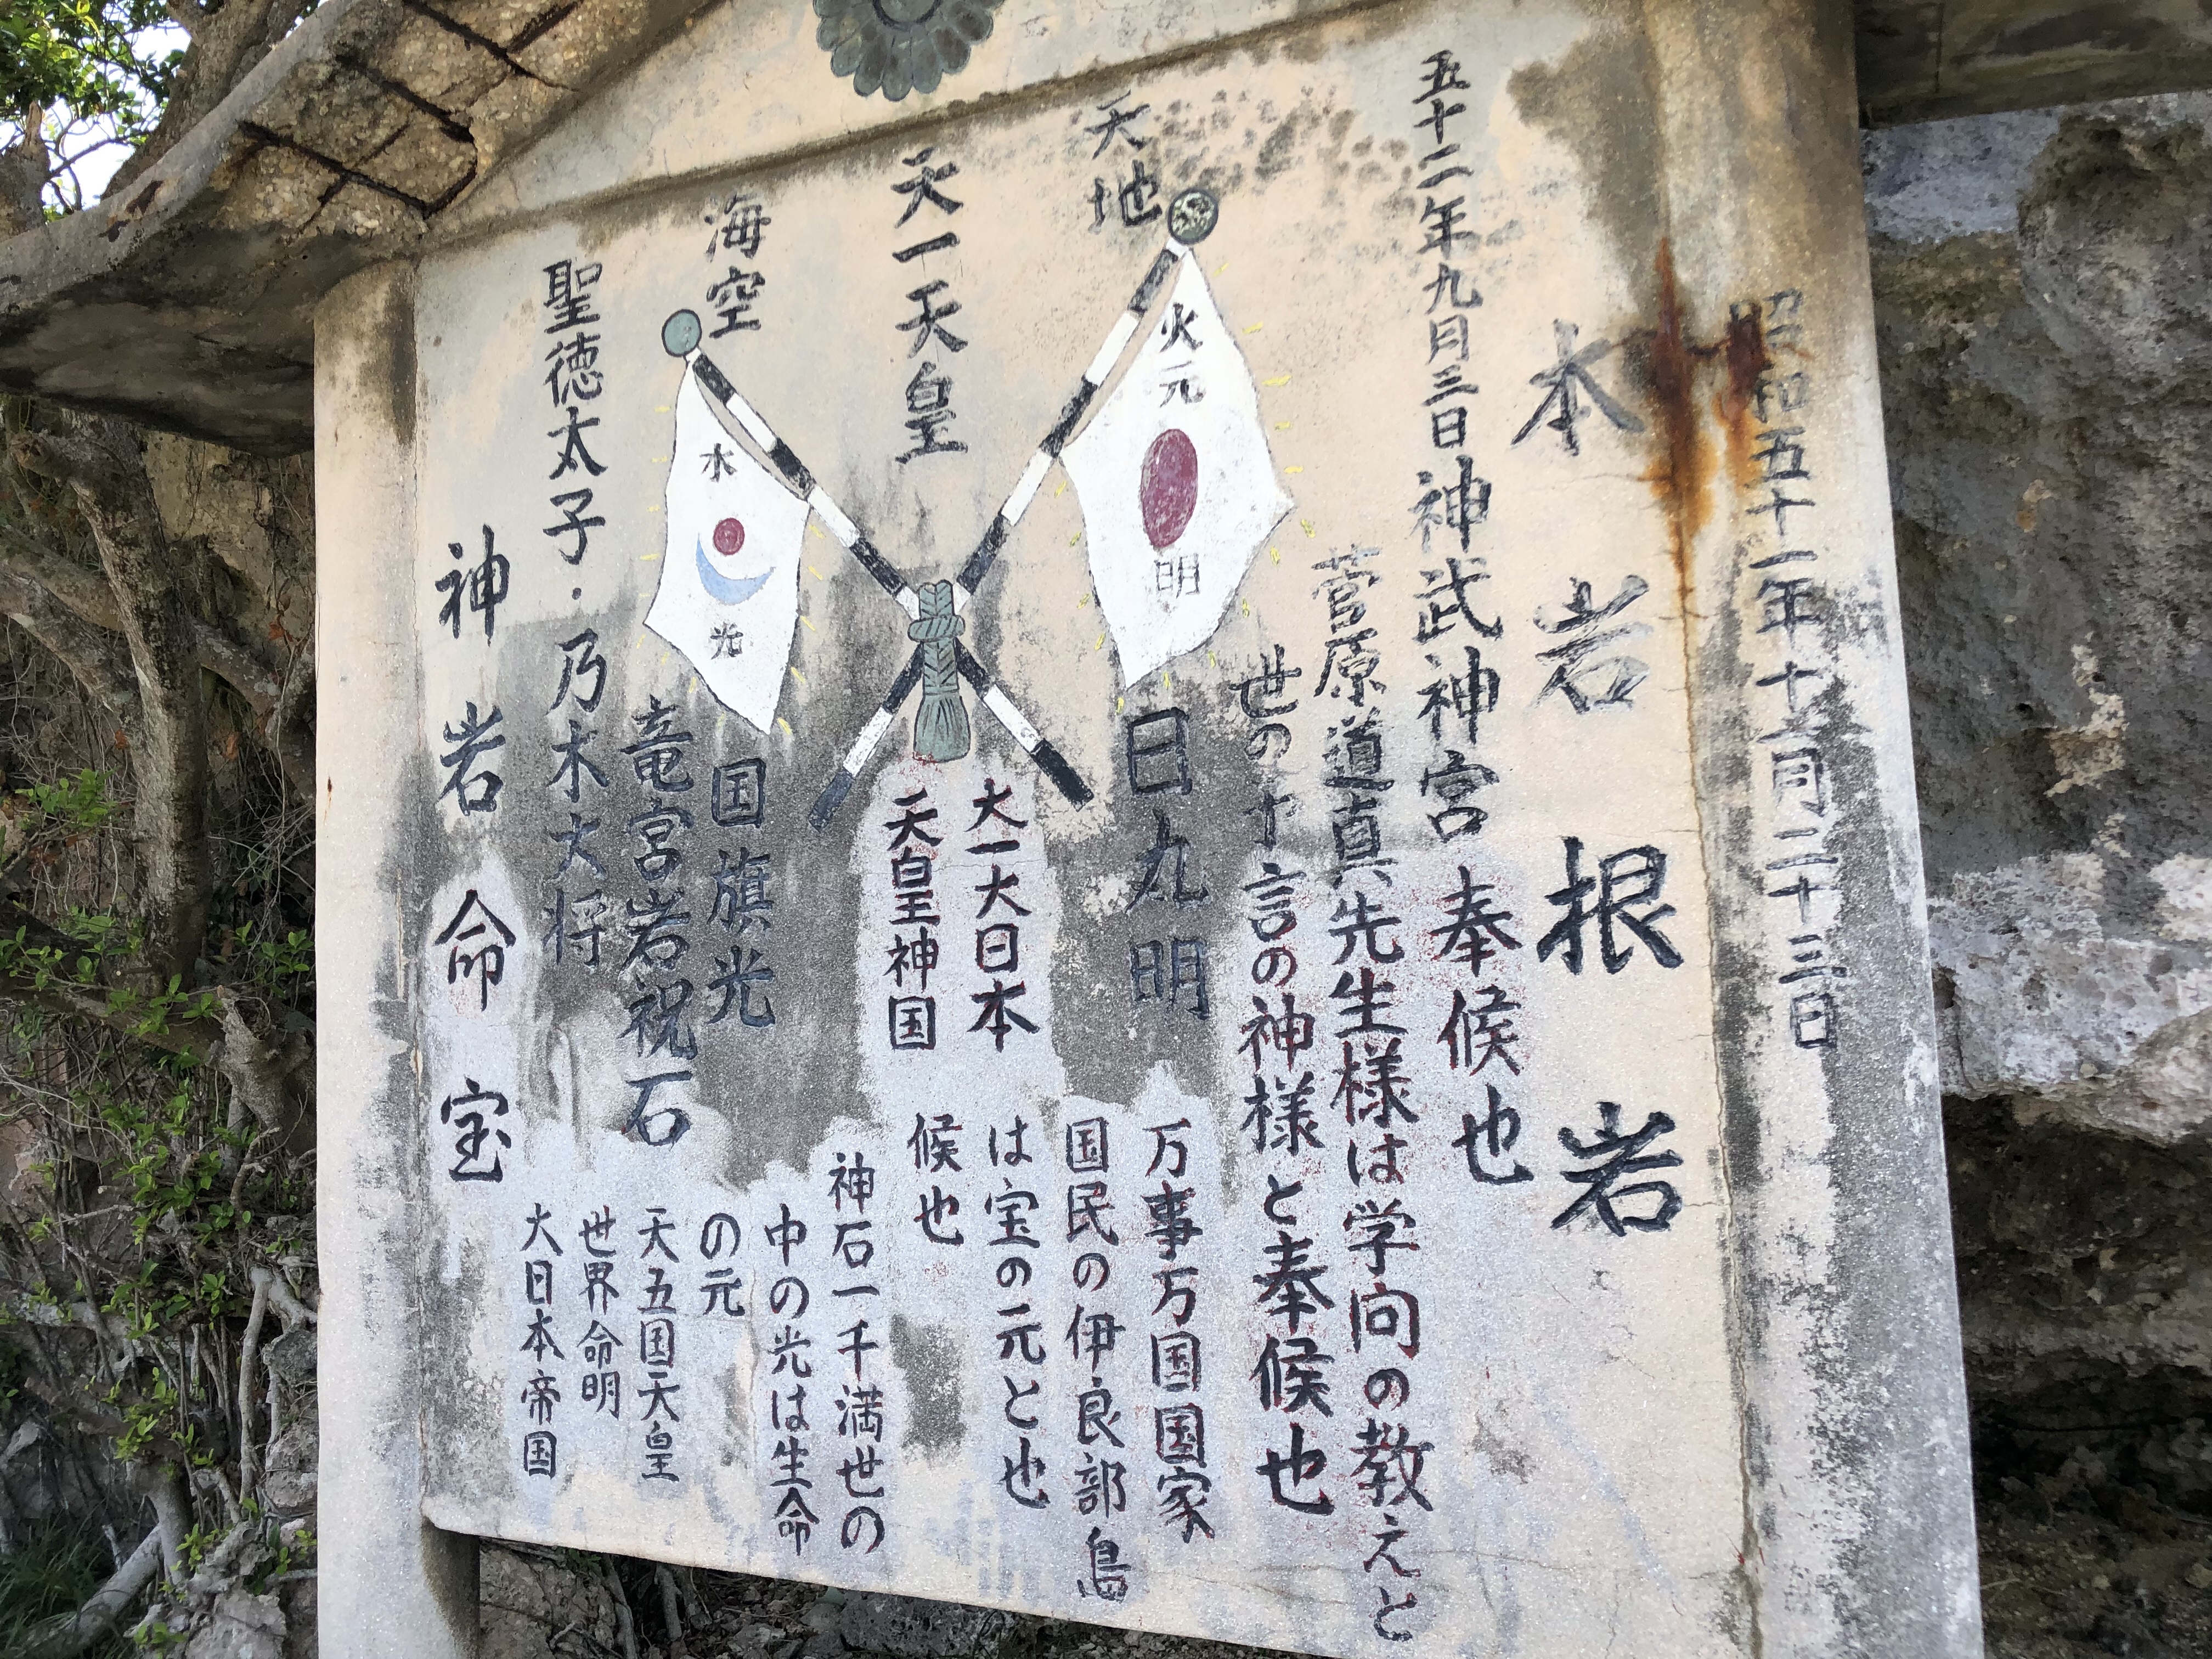 昭和五十一年十一月二十三日
本岩根岩
五十二年九月三日神武神宮奉候也
菅原道真先生様は学向の教えと
世の十言の神様と奉候也
天地
火元
明
日丸明
天一天皇
大一大日本
天皇神国
海空
水
光
国旗光
竜宮岩祝石
聖徳太子・乃木大将
神岩命宝
万事万国国家
国民の伊良部島
は宝の元と也
候也
神石一千満世の
中の光は生命
の元
天五国天皇
世界命明
大日本帝国